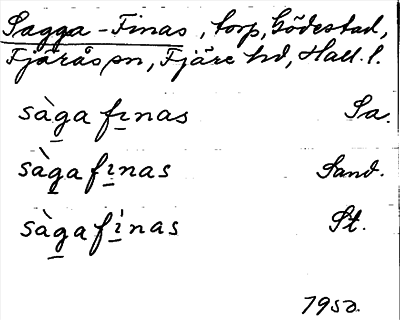 Sagga-Finas, torp, Gödestad,
Fjärås sn, Fjäre hd, Hall. l.
sàga finas Sa.
sàgafinas Sand.
sàgafinas St.
1950.